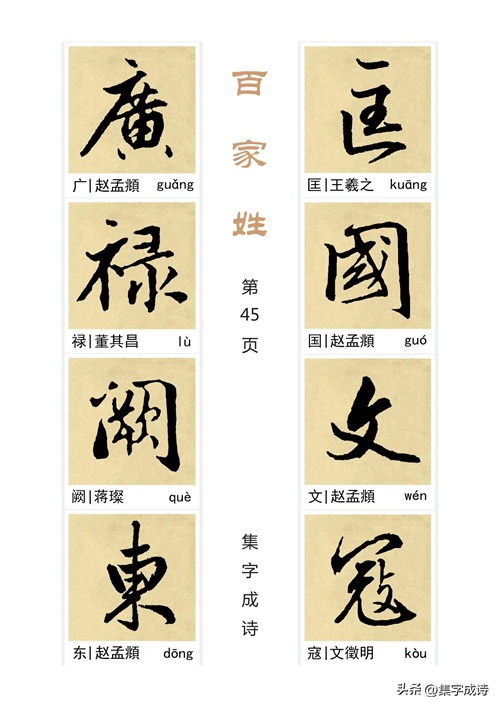 百家姓
第45页
匡
匡|王羲之 kuāng
國
国|赵孟頫 guó
文
文|赵孟頫 wén
寇
寇|文徵明 kòu
廣
广|赵孟頫 guǎng
禄
禄|董其昌 lù
闕
阙|蒋璨 què
東
东|赵孟頫 dōng
集字成诗
头条 @集字成诗